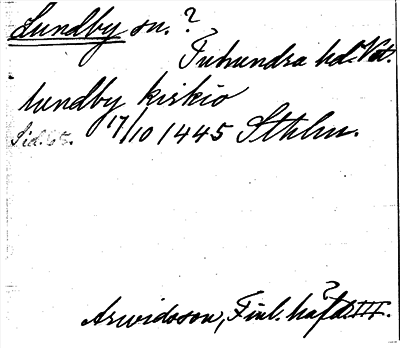 Lundby sn. ?
Tuhundra hd. Vstm.
lundby kirkio
17/10 1445 Sthlm.
Sid. 65.
Arwidsson, Finl. häfd. III.